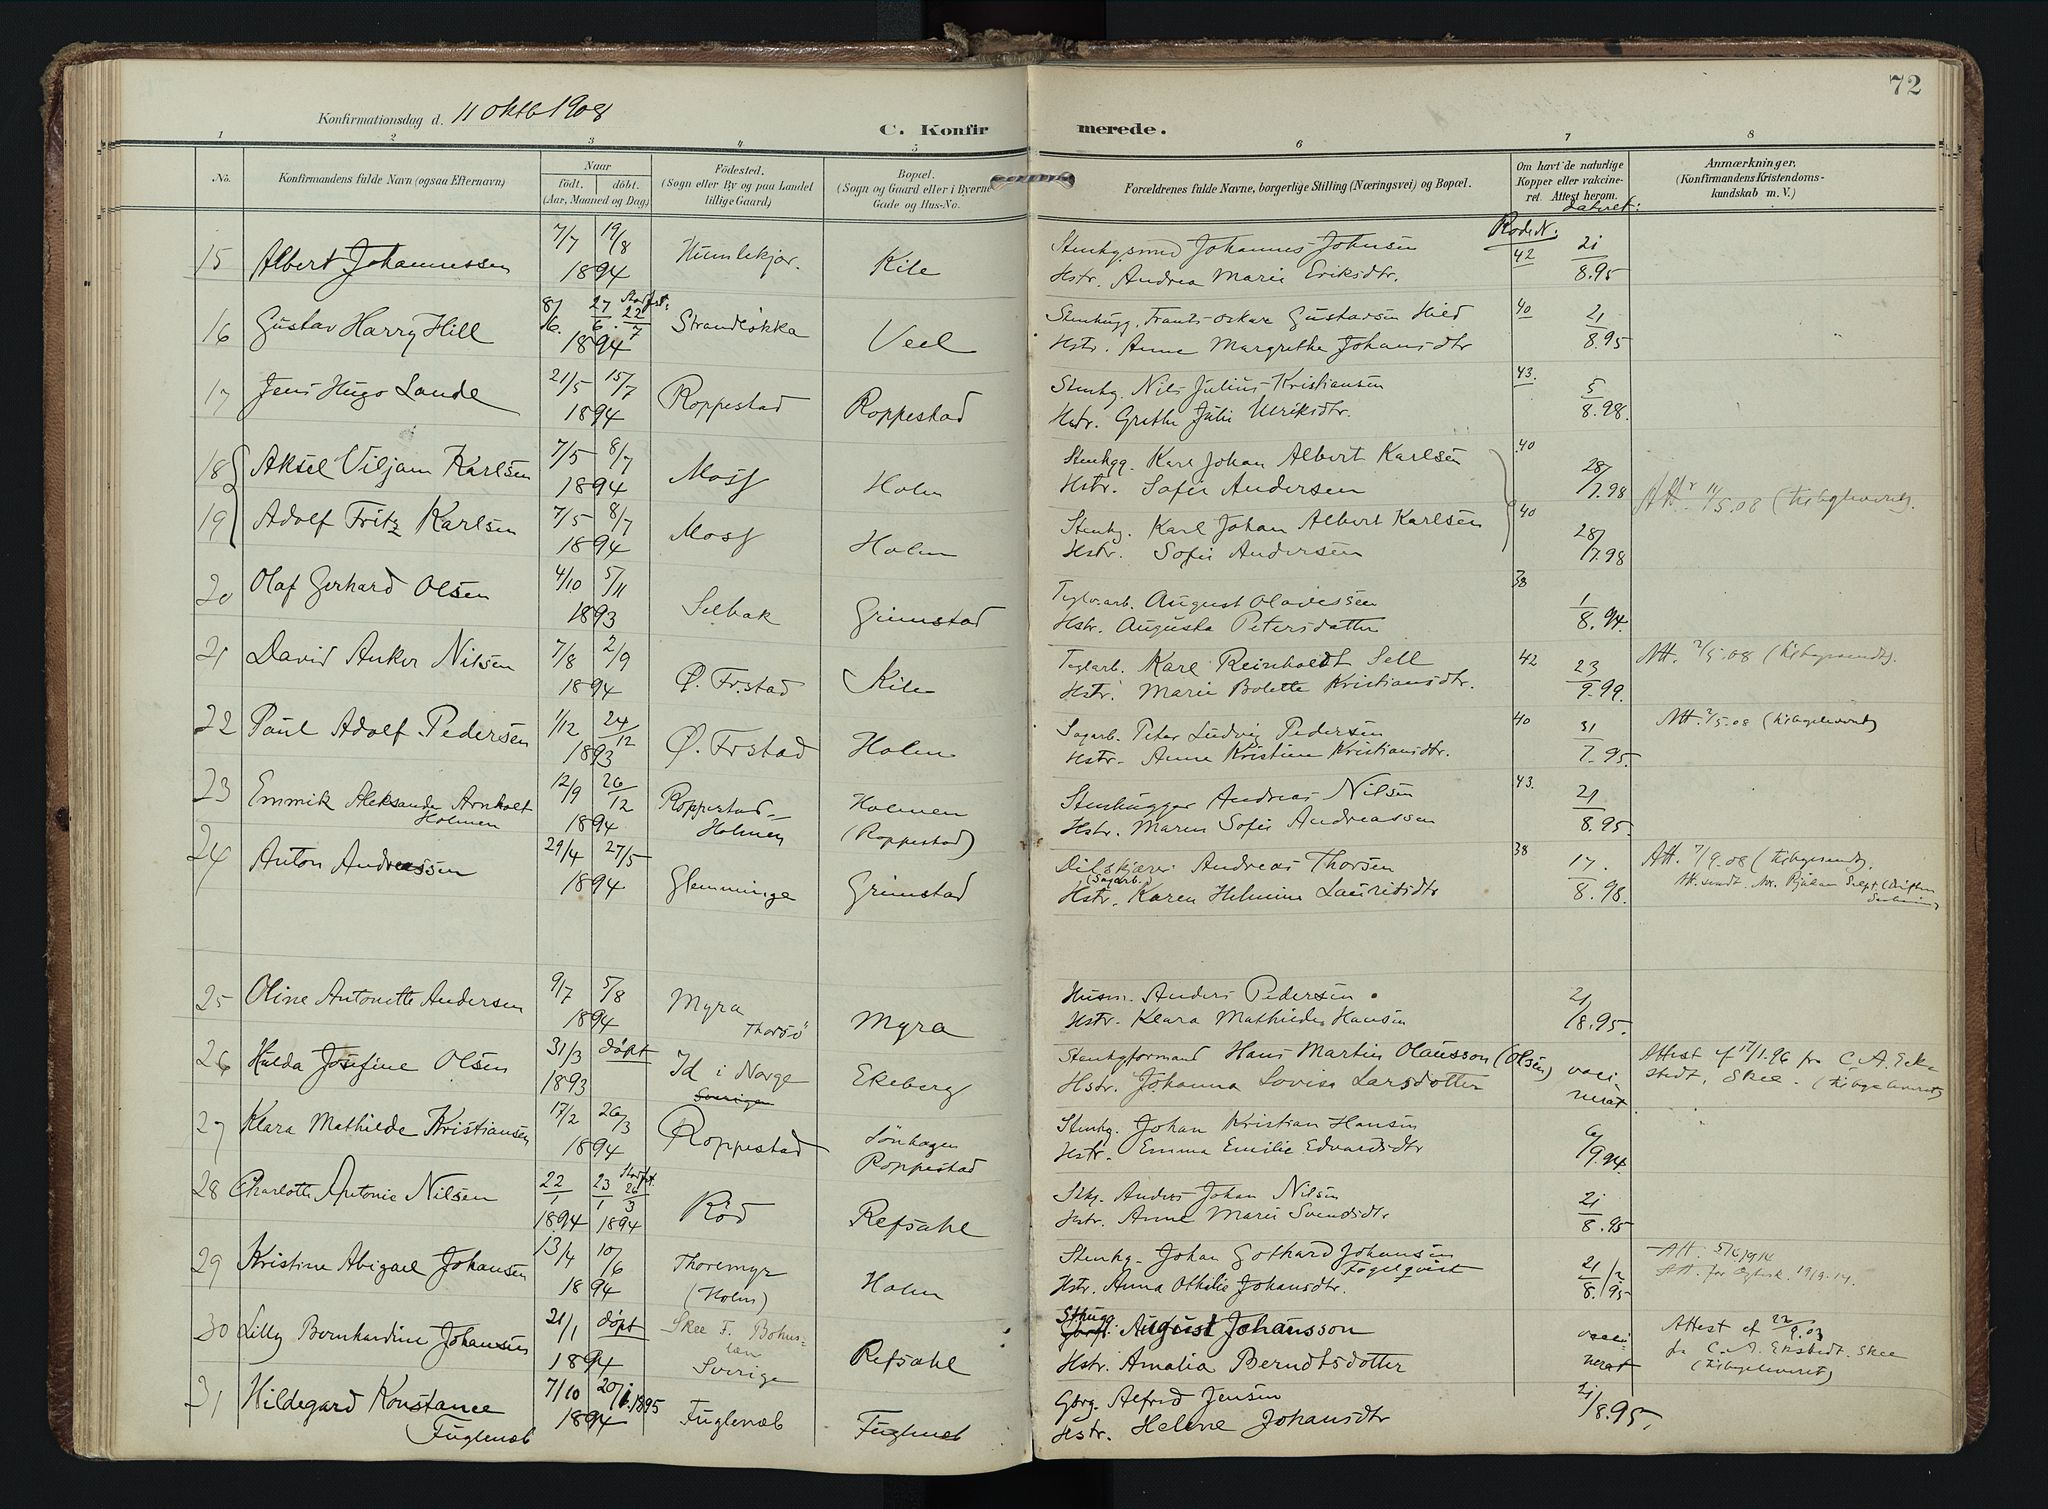 72
Konfirmationsdag d. 11 oktb 1908
C. Konfirmerede.
1 2 3 4 5 6 7 8
No. Konfirmandens fulde Navn (ogsaa Efternavn) Naar födt. döbt. (Aar, Maaned og Dag) Födested. (Sogn eller By og paa Landet tillige Gaard) Bopæl. (Sogn og Gaard eller i Byerne Gade og Hus-No. Forældrenes fulde Navne, borgerlige Stilling (Næringsvei) og Bopæl. Om havt de naturlige Kopper eller vaccineret. Attest herom. Anmærkninger, (Konfirmandens Kristendomskundskab m. V.)
Rode N. dateret:
15 Albert Johannessen 7/7 19/8 1894 Humlekjær. Kile Stenhgsmed Johannes Johnsen 42 21/8.95
Hstr. Andrea Marie Eriksdtr.
16 Gustav Harry Hill 8/6. 27/6. Stadfst: 22/7 1894 Strandløkka Veel Stenhugg. Frants Oskar Gustavsen Hild 40 21/8.95
Hstr. Anne Margrethe Johansdtr
17 Jens Hugo Lande 21/5 15/7 1894 Roppestad Roppestad Stenhg. Nils Julius Kristiansen 43. 5/8.98.
Hstr. Grethe Julie Ulriksdtr.
18 Aksel Viljam Karlsen 7/5 8/7 1894 Moss Holm Stenhgg. Karl Johan Albert Karlsen 40 28/7.98 Att. 11/5.08 (tilbgleveret).
Hstr. Sofie Andersen
19 Adolf Fritz Karlsen 7/5 8/7 1894 Moss Holm Stenhg. Karl Johan Albert Karlsen 40 28/7.98
Hstr. Sofie Andersen
20 Olaf Gerhard Olsen 4/10 5/11 1893 Selbak Grimstad Teglv.arb. August Olavessen 38 1/8.94.
Hstr. Augusta Petersdatter
21 David Anker Nilsen 7/8 2/9 1894 Ø. Fr.stad Kile Teglarb. Karl Reinholdt Sell 42 23/9.99. Att. 2/5.08 (tilbgesendt).
Hstr. Marie Bolette Kristiansdtr.
22 Paul Adolf Pedersen 1/12 24/12 1893 Ø. Frstad Holm Sagarb. Peter Ludvig Pedersen 40 31/7.95. Att. 2/5.08 (tilbgeleveret)
Hstr. Anne Kristine Kristiansdtr.
23 Emmik Aleksander Arnholt Holmen 12/9 26/12 1894 Roppestad Holmen Holmen (Roppestad) Stenhugger Andreas Nilsen 43. 21/8.95.
Hstr. Maren Sofie Andreassen
24 Anton Andreassen 29/4 27/5 1894 Glemminge Grimstad Andreas Thorsen (Sagarb.) 38 17/8.98. Att. 7/9.08 (tilbgesendt).
Hstr. Karen Helmine Lauritsdtr
25 Oline Antonette Andersen 9/7 5/8 1894 Myra Thorsö Myra Husm. Anders Pedersen 21/8.95.
Hstr. Klara Mathilde Hansen
26 Hulda Josefine Olsen 31/3 døpt 1893 Id i Norge Sverige Ekeberg Stenhgformand Hans Martin Olausson (Olsen) vaccinerat Attest af 17/1.96 fra C. A. Ekstedt, Skee. (tilbgeleveret)
Hstr. Johanna Lovisa Larsdotter
27 Klara Mathilde Kristiansen 17/2 26/3 1894 Roppestad Sönhagen Roppestad Stenhg. Johan Kristian Hansen 6/9.94.
Hstr. Emma Emilie Edvardsdtr
28 Charlotte Antonie Nilsen 22/1 1894 23/1 1894 Stadfst. 26/3 Röd Refsahl Sthg. Anders Johan Nilsen 21/8.95
Hstr. Anne Marie Svendsdtr
29 Kristine Abigael Johansen 13/4 10/6 1894 Thoremyr (Holm) Holm Stenhg. Johan Gothard Johansen Fogelqvist 21/8.95 Att. 5/6 1914
Hstr. Anna Othilie Johansdtr.
30 Lilly Bernhardine Johansen 21/1 døpt 1894 Skee F. Bohuslän Sverige Refsahl Sthugg August Johansson vaccinerat Attest af 22/9.03 fra C. A. Ekstedt. Skee (tilbgeleveret)
Hstr. Amalia Berndtsdotter
31 Hildegard Konstance Fuglenæb 7/10 1894 20/1.1895 Fuglenæb Fuglenæb Gbrg. Alfred Jensen 21/8.95.
Hstr. Helene Johansdtr